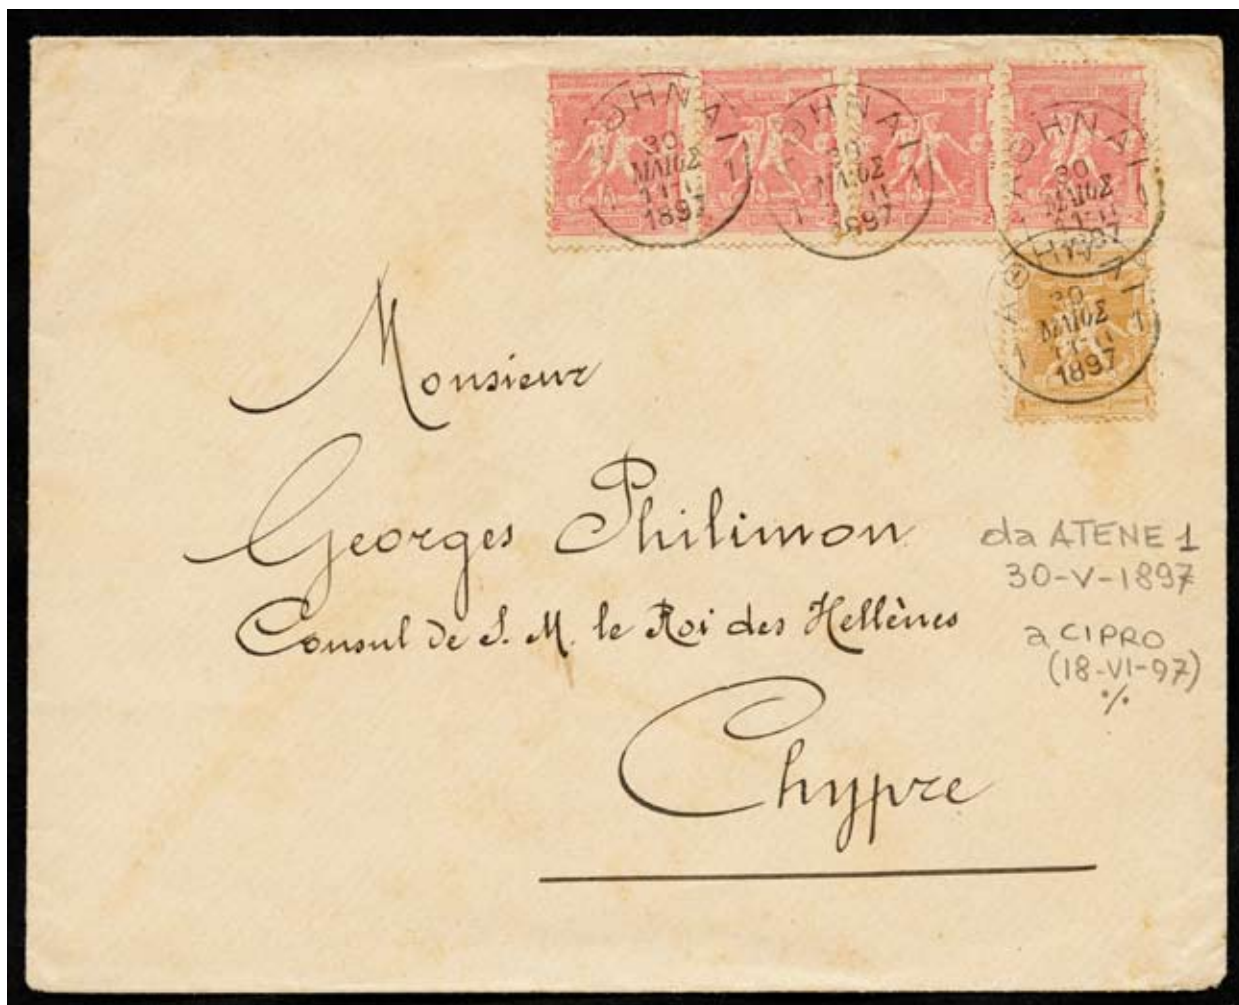 ΑΘΗΝΑΙ
30
ΜΑΙΟΣ
1897
1 1
ΑΘΗΝΑΙ
30
ΜΑΙΟΣ
1897
1 1
ΑΘΗΝΑΙ
30
ΜΑΙΟΣ
1897
1
ΑΘΗΝΑΙ
30
ΜΑΙΟΣ
1897
1 1
Monsieur
Georges Philimon
Consul de S. M. le Roi des Hellènes
Chypre
da ATENE 1
30-V-1897
a CIPRO
(18-VI-97)
%